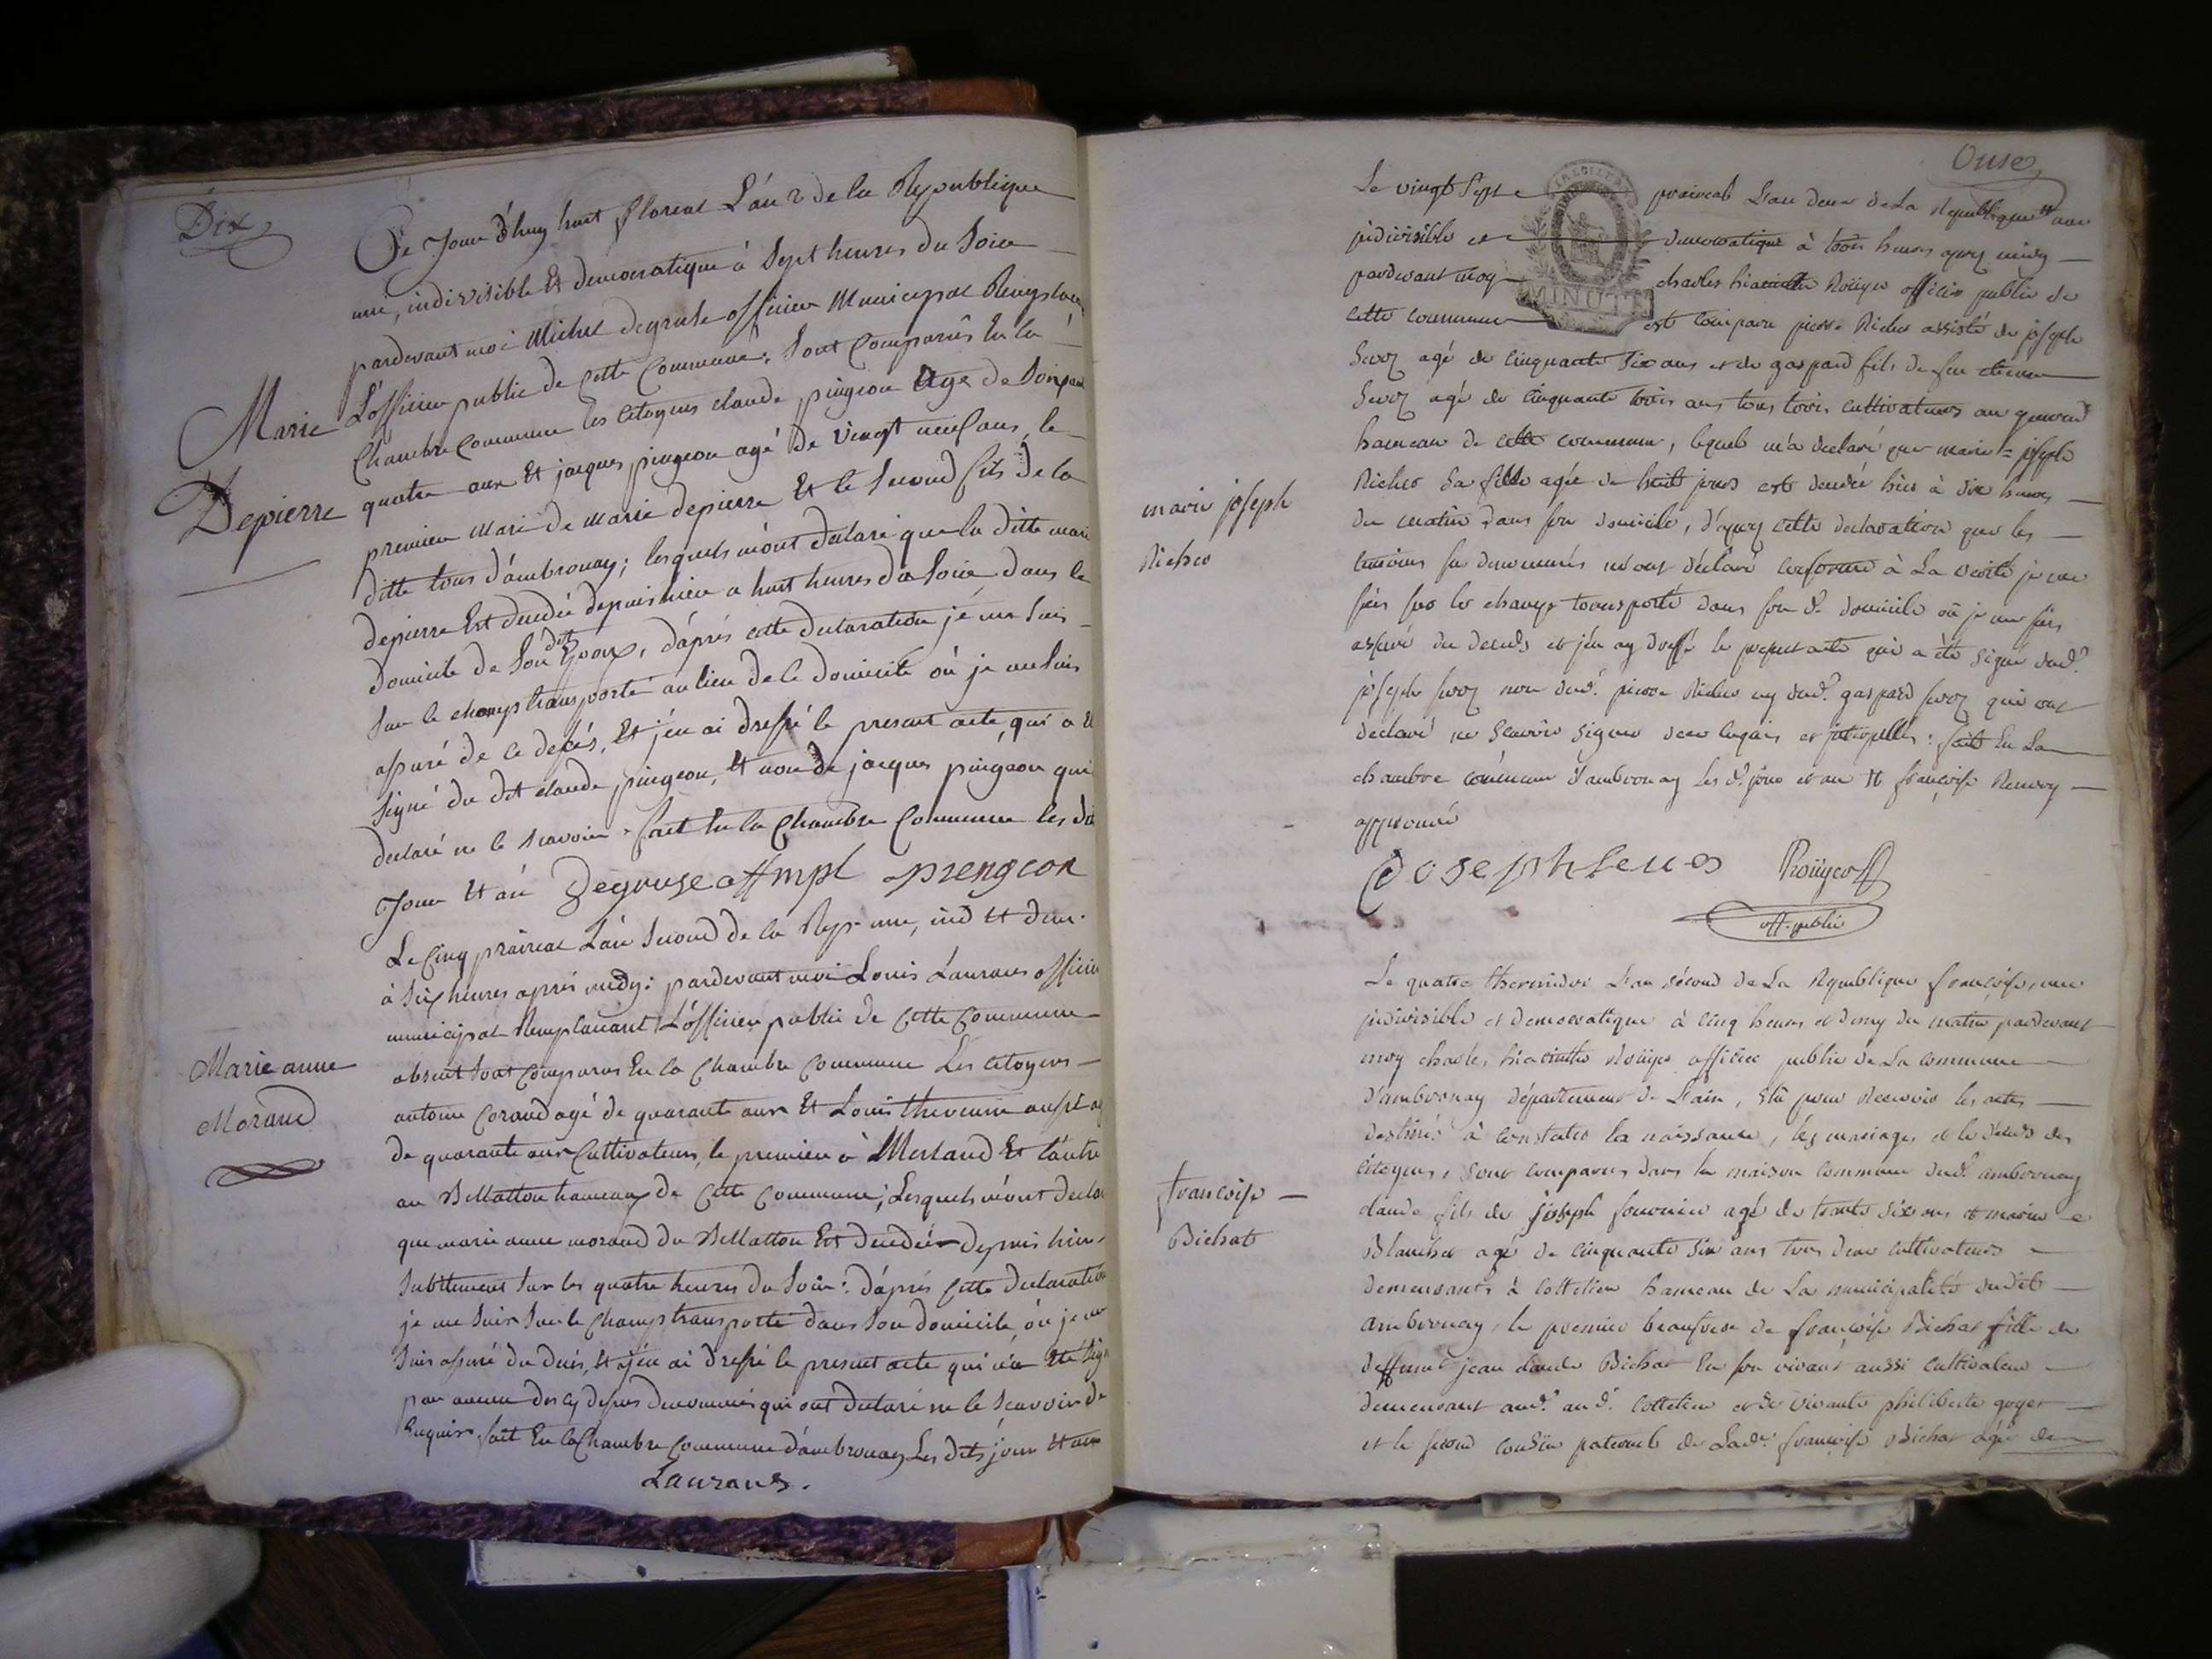 Dix
Ce Jour d'huy huit floreal L'an 2 de la Republique
une, indivisible et democratique à Sept heures du Soire
pardevant moi Michel degruse officier Municipal Remplacant
L'officier public de cette Commune, sont Comparus En la
Chambre Commune les Citoyens claude pingeon age de soixante
quatre ans Et jacques pingeon agé de vingt neuf ans, le
premier Mari de marie depierre Et le second fils de la
ditte tous d'ambronay; lesquels m'ont declaré que la ditte marie
depierre Est decedée depuis hier a huit heures du Soire dans le
domicile de Son dit Epoux, d'après cette declaration je me suis
sur le champ transporté au lieu de le domicile où je me suis
assuré de ce decés, Et j'en ai dressé le present acte, qui a Eté
signé du dit claude pingeon, Et non de jacques pingeon qui
declaré ne le scavoir. fait En la Chambre Commune les dit
Jour Et an Degruse off mpl prengeon
Marie
Depierre
Le Cinq prairial L'an Second de la Rep. une, ind Et dem.
à Six heures après midy: pardevant moi Louis Laurans officier
municipal Remplacant L'officier public de Cette Commune
absent sont Comparus En la Chambre Commune Les Citoyens
antoine Corand agé de quarante ans Et Louis thevenin aussi agé
de quarante ans Cultivateurs, le premier à Merland Et l'autre
au Bellatton hameau de Cette Commune; Lesquels m'ont declaré
que marie anne morand du Bellatton Est decedée depuis hier
subitement sur les quatre heures du Soire: d'après Cette declaration
je me suis sur le Champ transporté dans son domicile, où je me
suis assuré du decès, Et j'en ai dressé le present acte qui n'a Eté signé
par aucun des cy dessus denommés qui ont declaré ne le scavoir de
Enquis, fait En la Chambre Commune d'ambronay Les dits jour Et an
Laurans.
Marie anne
Morand
Onse
Le vingt Sept prairial L'an deux de La Republique une
indivisible et democratique à trois heures apres midy
pardevant moy charles hiacinthe Roüyer officier public de
cette commune est comparu pierre Richer assisté de joseph
Servoz agé de cinquante six ans et de gaspard fils de feu etienne
Servoz agé de cinquante trois ans tous trois cultivateurs au
hameau de cette commune, lequel m'a declaré que marie = joseph
Richer sa fille agée de huit jours est decedée hier à dix heures
du matin dans son domicile, d'apres cette declaration que les
temoins sus denommés m'ont déclaré conforme à La verité je me
suis sur le champ transporté dans son d. domicile où je me suis
assuré du deceds et j'en ay dressé le present acte qui a été signé dud.
joseph servoz non dud. pierre Richer ny dud. gaspard servoz qui ont
declaré ne scavoir signer de ce enquis et interpellés: fait En La
chambre commune d'ambronay les d. jour et an Et françoise Renvoy
approuvé
MINUTE
Joseph serves Roüyer
off. public
marie joseph
Richer
Le quatre thermidor L'an sécond de La Republique françoise, une
indivisible et democratique à cinq heures et demy du matin, pardevant
moy charles hiacinthe Roüyer officier public de La commune
d'ambronay département de L'ain, élû pour Recevoir les actes
destinés à constater la naissance, les mariages et le deceds des
citoyens, sont comparus dans la maison commune dud. ambronay
claude fils de joseph fournier agé de trente six ans et marin
Blanchet agé de cinquante six ans tous deux cultivateurs
demeurants à Cottelieu hameau de La municipalité dudit
ambronay, le premier beaufrere de françoise Bichat fille de
deffunt jean claude Bichat En son vivant aussi cultivateur
demeurant aud. au d. Cottelieu et de vivante philiberte goyet
et le second cousin paternel de Lade. françoise Bichat agée de
françoise
Bichat